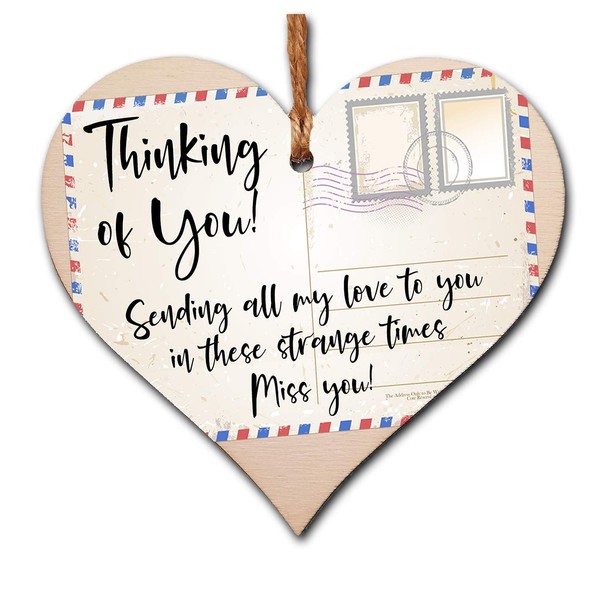 Thinking
of You!
Sending all my love to you
in these strange times
Miss you!
The Address Only to Be